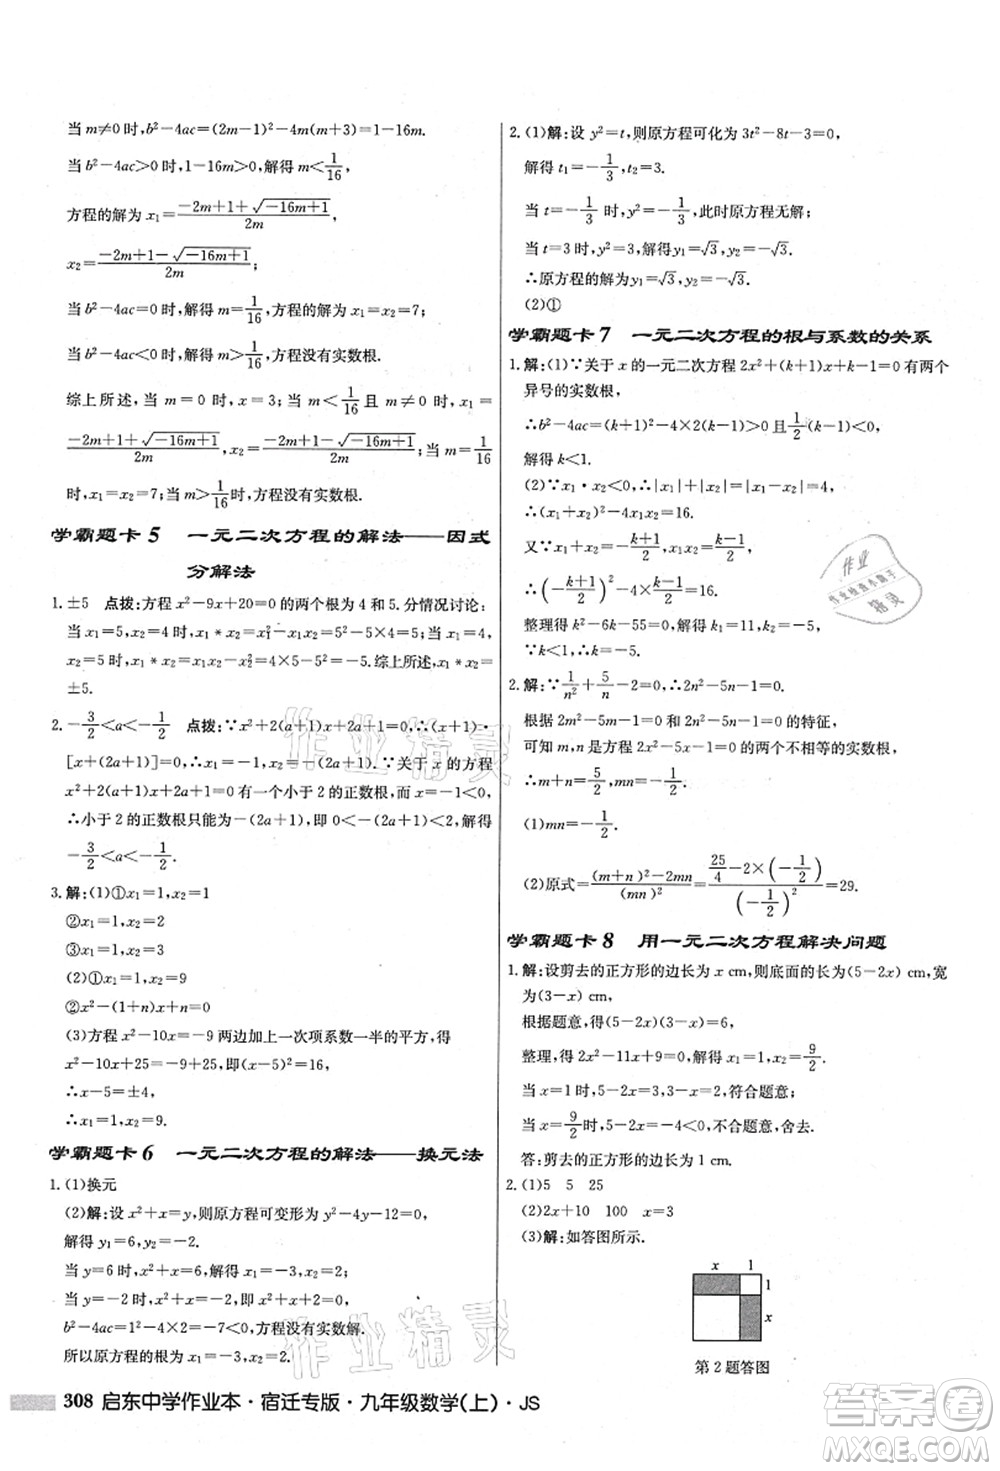 当 m≠0 时,b²-4ac=(2m-1)²-4m(m+3)=1-16m.
当 b²-4ac>0 时,1-16m>0,解得 m<1/16,
方程的解为 x₁=(-2m+1+√(-16m+1))/(2m),
x₂=(-2m+1-√(-16m+1))/(2m);
当 b²-4ac=0 时,解得 m=1/16,方程的解为 x₁=x₂=7;
当 b²-4ac<0 时,解得 m>1/16,方程没有实数根.
综上所述,当 m=0 时,x=3;当 m<1/16 且 m≠0 时,x₁=
(-2m+1+√(-16m+1))/(2m),x₂=(-2m+1-√(-16m+1))/(2m);当 m=1/16
时,x₁=x₂=7;当 m>1/16时,方程没有实数根.
学霸题卡 5 一元二次方程的解法——因式
分解法
1. ±5 点拨:方程 x²-9x+20=0 的两个根为 4 和 5.分情况讨论:
当 x₁=5,x₂=4 时,x₁*x₂=x₁²-x₁x₂=5²-4×5=5;当 x₁=4,
x₂=5 时,x₁*x₂=x₁x₂-x₂²=4×5-5²=-5.综上所述,x₁*x₂=
±5.
2. -3/2<a<-1/2 点拨:∵x²+2(a+1)x+2a+1=0,∴(x+1)·
[x+(2a+1)]=0,∴x₁=-1,x₂=-(2a+1).∵关于 x 的方程
x²+2(a+1)x+2a+1=0 有一个小于 2 的正数根,-1<0,
∴小于 2 的正数根只能为-(2a+1),即 0<-(2a+1)<2,解得
-3/2<a<-1/2.
3. 解:(1)①x₁=1,x₂=1
②x₁=1,x₂=2
③x₁=1,x₂=3
(2)①x₁=1,x₂=n
②x²-(1+n)x+n=0
(3)方程 x²-10x=-9 两边加上一次项系数一半的平方,得
x²-10x+25=-9+25,即(x-5)²=16,
∴x-5=±4,
∴x₁=1,x₂=9.
学霸题卡 6 一元二次方程的解法——换元法
1. (1)换元
(2)解:设 x²+x=y,则原方程可变形为 y²-4y-12=0,
解得 y₁=6,y₂=-2.
当 y=6 时,x²+x=6,即 x²+x-6=0,解得 x₁=-3,x₂=2;
当 y=-2 时,x²+x=-2,即 x²+x+2=0,
b²-4ac=1²-4×2=-7<0,方程没有实数解.
所以原方程的解为 x₁=-3,x₂=2.
2. (1)解:设 y²=t,则原方程可化为 3t²-8t-3=0,
解得 t₁=-1/3,t₂=3.
当 t=-1/3 时,y²=-1/3,此时原方程无解;
当 t=3 时,y²=3,解得y₁=√3,y₂=-√3.
∴原方程的解为y₁=√3,y₂=-√3.
(2)①
学霸题卡 7 一元二次方程的根与系数的关系
1. 解:(1)∵关于 x 的一元二次方程 2x²+(k+1)x+k-1=0 有两个
异号的实数根,
∴b²-4ac=(k+1)²-4×2(k-1)>0 且1/2(k-1)<0,
解得 k<1.
(2)∵x₁·x₂<0,|x₁-x₂|=|x₁|+|x₂|=4,
∴(x₁-x₂)²=(x₁+x₂)²-4x₁x₂=16.
又∵x₁+x₂=-(k+1)/2,x₁x₂=(k-1)/2,
∴(-(k+1)/2)²-4×(k-1)/2=16,
整理得 k²-6k-55=0,解得 k₁=11,k₂=-5.
∵k<1,∴k=-5.
2. 解:∵1/n²+5/n-2=0,∴2n²-5n-1=0,
根据 2m²-5m-1=0 和 2n²-5n-1=0 的特征,
可知 m,n 是方程 2x²-5x-1=0 的两个不相等的实数根,
∴m+n=5/2,mn=-1/2.
(1)mn=-1/2.
(2)原式=((m+n)²-2mn)/(mn)²=(25/4-2×(-1/2))/(-1/2)²=29.
学霸题卡 8 用一元二次方程解决问题
1. 解:设剪去的正方形的边长为 x cm,则底面的长为(5-2x) cm,宽
为(3-x) cm,
根据题意,得(5-2x)(3-x)=6,
整理,得 2x²-11x+9=0,解得 x₁=1,x₂=9/2.
当 x=1 时,5-2x=3>0,3-x=2,符合题意;
当 x=9/2时,5-2x=-4<0,不符合题意,舍去.
答:剪去的正方形的边长为 1 cm.
2. (1)5 5 25
(2)2x+10 100 x=3
(3)解:如答图所示.
x 1
1
x
第 2 题答图
308 启东中学作业本·宿迁专版·九年级数学(上)·JS
作业精灵
作业精灵
作业
精灵
答案圈
MXQE.COM